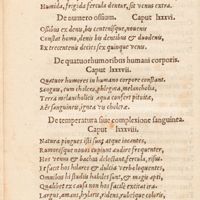 Humida, frigida fercula dentur, sit venus extra.
De numero ossium. Caput lxxxvi.
Ossibus ex denis, bis centenisque, novenis
Constat homo, denis bis dentibus & duodenis,
Ex trecentenis decies sex quinque venis.
De quatuor humoribus humani corporis.
Caput lxxxvii.
Quatuor humores in humano corpore constant.
Sanguis, cum cholera, phlegma, melancholia,
Terra melancholicis aqua confert pituitæ,
Aër sanguineis, ignis
De temperatura siue complexione sanguinea.
Caput lxxxviii.
Natura pingues isti sunt atque iocantes,
Rumoresque nouos cupiunt audire frequenter,
Hos venus & bachus delectant, fercula, risus,
Et facit hos hilares & dulcia verba loquentes.
Omnibus hi studiis habiles sunt, & magis apti,
Qualibet ex causa non hos facile excitat ira.
Largus, amans, hylaris, ridens, rubeique coloris,